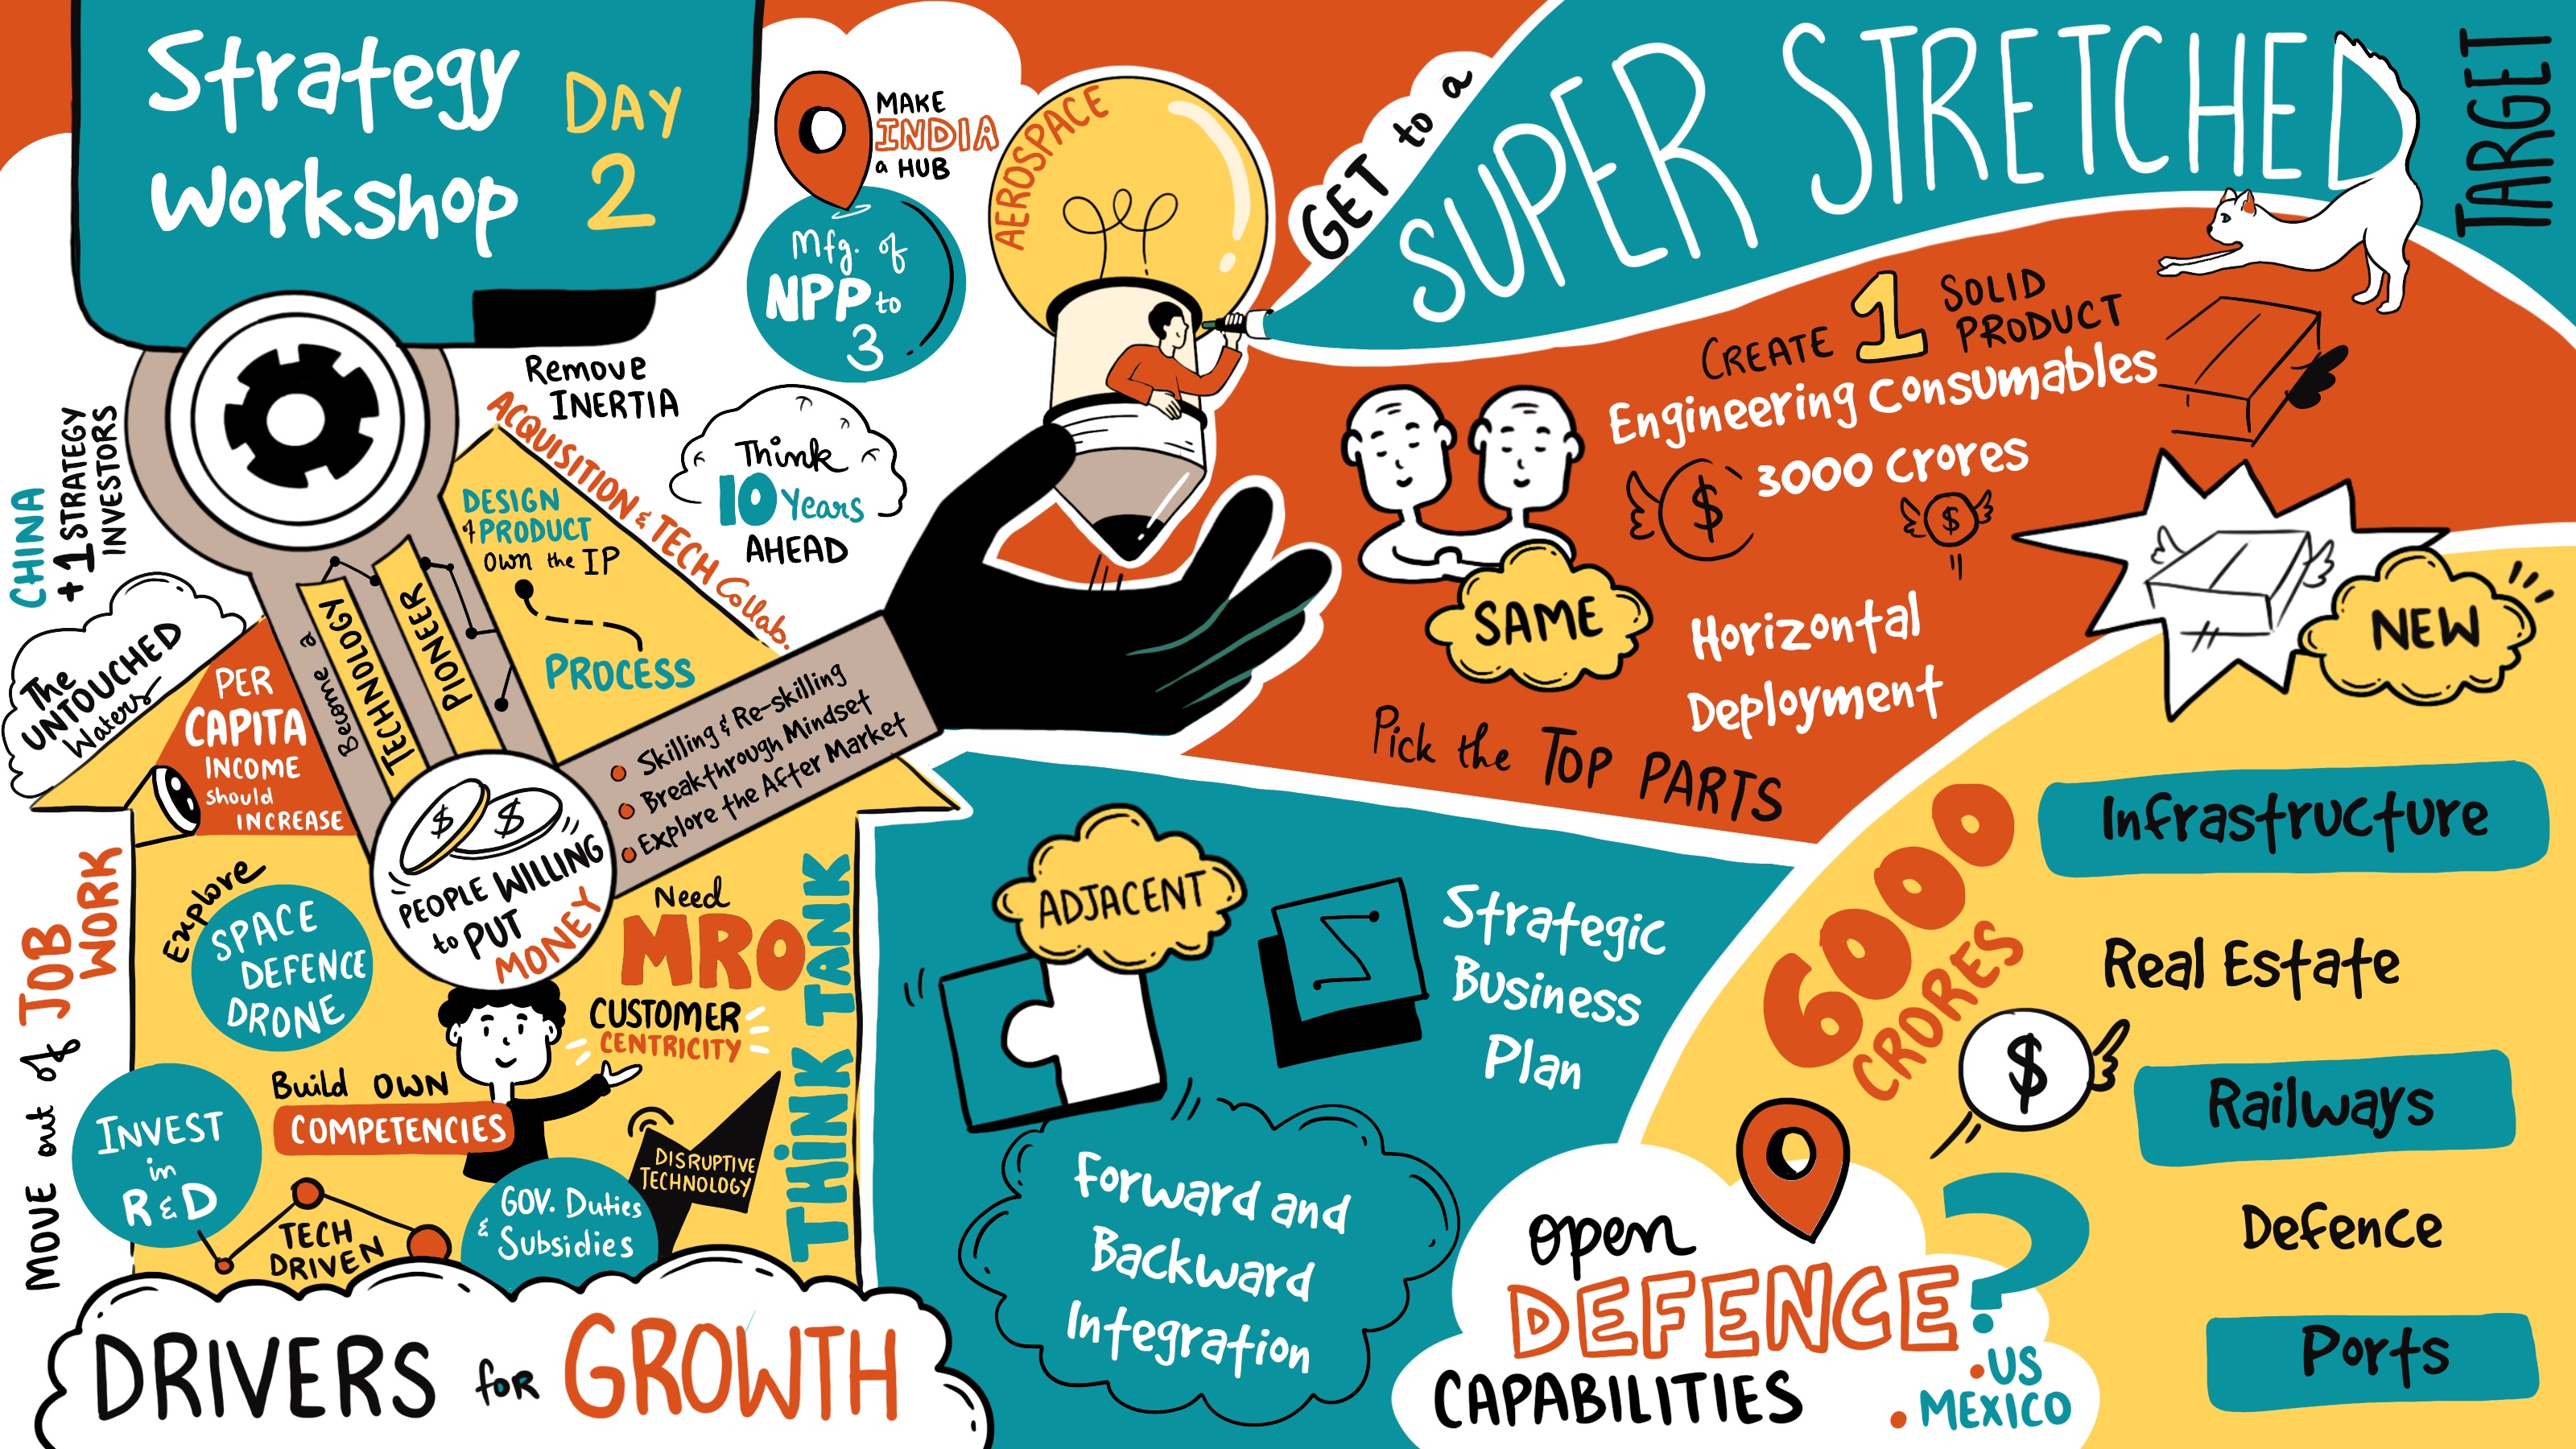 Strategy
Workshop
DAY
2
MAKE
INDIA
a HUB
Mfg. of
NPP to
3
AEROSPACE
GET to a
SUPER STRETCHED
TARGET
Remove
INERTIA
ACQUISITION & TECH Collab.
Think
10 Years
AHEAD
CHINA
+1 STRATEGY
INVESTORS
The
UNTOUCHED
Waters
DESIGN
& PRODUCT
Own the IP
PROCESS
Become a
TECHNOLOGY
PIONEER
PER
CAPITA
INCOME
should
INCREASE
Skilling & Re-skilling
Breakthrough Mindset
Explore the After Market
PEOPLE WILLING
to PUT
MONEY
MOVE out of JOB
WORK
Explore
SPACE
DEFENCE
DRONE
Need
MRO
CUSTOMER
CENTRICITY
THINK TANK
Build OWN
COMPETENCIES
INVEST
in
R & D
TECH
DRIVEN
GOV. Duties
& Subsidies
DISRUPTIVE
TECHNOLOGY
DRIVERS for GROWTH
CREATE 1 SOLID
PRODUCT
Engineering Consumables
$ 3000 Crores
$
SAME
Horizontal
Deployment
Pick the TOP PARTS
NEW
ADJACENT
Strategic
Business
Plan
Forward and
Backward
Integration
6000
CRORES
$
Infrastructure
Real Estate
Railways
Defence
Ports
open
DEFENCE?
CAPABILITIES
• US
• MEXICO